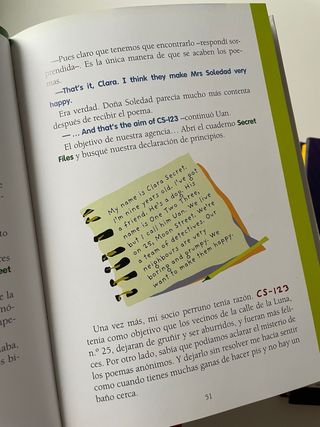 —Pues claro que tenemos que encontrarlo –respondí sor-
prendida–. Es la única manera de que se acaben los poe-
mas.
—That's it, Clara. I think they make Mrs Soledad very
happy.
Era verdad. Doña Soledad parecía mucho más contenta
después de recibir el poema.
— ... And that's the aim of CS-123 –continuó Uan.
El objetivo de nuestra agencia... Abrí el cuaderno Secret
Files y busqué nuestra declaración de principios.
My name is Clara Secret.
I'm nine years old. I've got
a friend. He's a dog. His
name is One Two Three,
but I call him Uan. We live
on 25, Moon Street. We're
a team of detectives. Our
neighbours are very
boring and grumpy. We
want to make them happy.
Una vez más, mi socio perruno tenía razón. CS-123
tenía como objetivo que los vecinos de la calle de la Luna,
n.º 25, dejaran de gruñir y ser aburridos, y fueran más feli-
ces. Por otro lado, sabía que podíamos aclarar el misterio de
los poemas anónimos. Y dejarlo sin resolver me hacía sentir
como cuando tienes muchas ganas de hacer pis y no hay un
baño cerca.
51